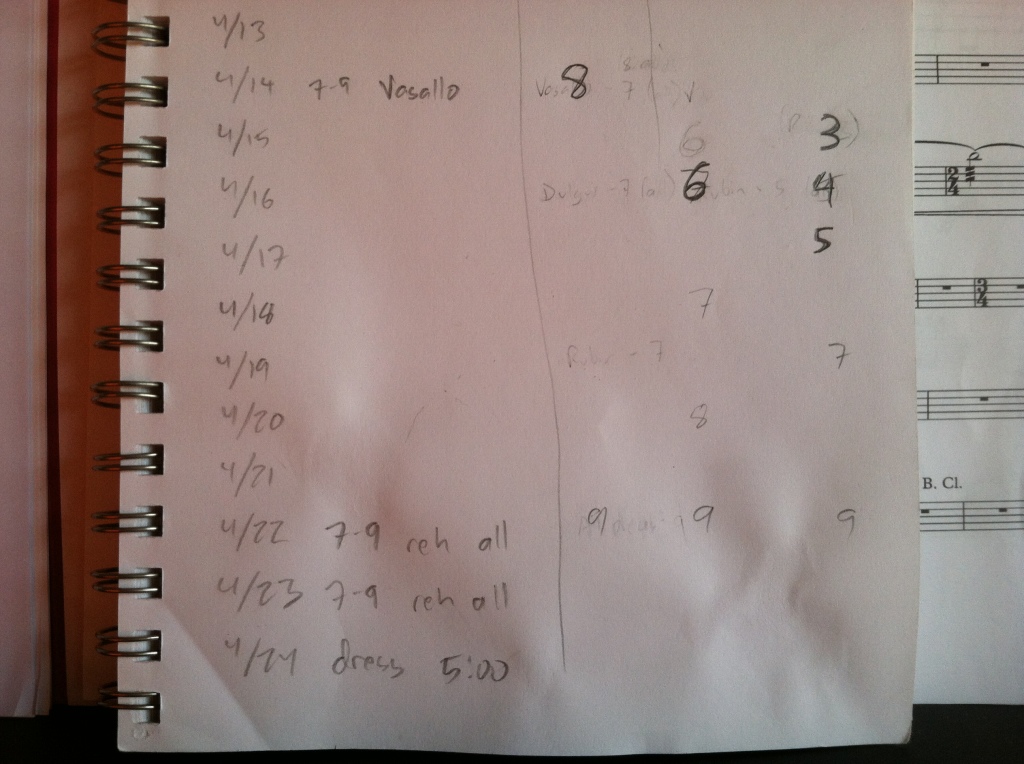 4/13
4/14 7-9 Vasallo 8 7
4/15 6 3
4/16 6 4
4/17 5
4/18 7
4/19 7 7
4/20 8
4/21
4/22 7-9 reh all 9 9 9
4/23 7-9 reh all
4/24 dress 5:00
2/4
3/4
B. Cl.